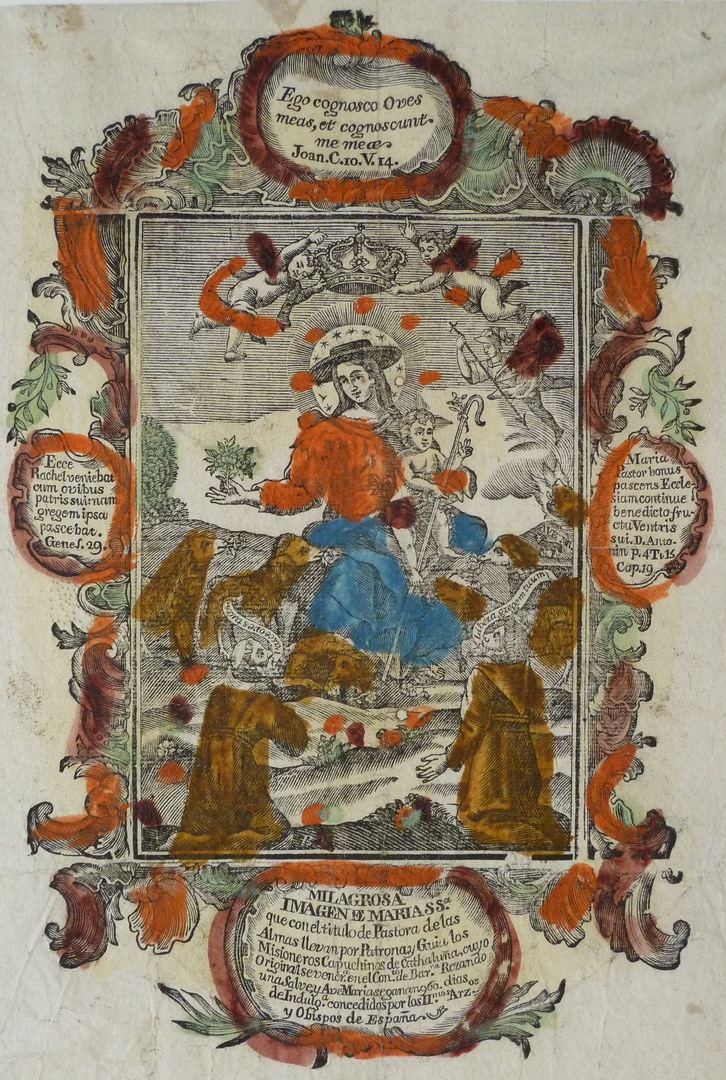 Ego cognosco Oves
meas, et cognoscunt
me meæ
Joan.C.10.V.14.
Ecce
Rachel veniebat
cum ovibus
patris sui nam
gregem ipsa
pascebat.
Genes. 29.
Maria
Pastor bonus
pascens Eccle-
siam continue
benedicto fru-
ctu Ventris
sui. D. Anto-
nin p. 4 Ti. 15
Cap. 19
gregem tuum
MILAGROSA
IMAGEN DE MARIA SS.ª
que con el titulo de Pastora de las
Almas llevan por Patrona, y Guia los
Misioneros Capuchinos de Cathaluña, cuyo
Original se venera en el Con.to de Bar.na Rezando
una Salve, y Ave Maria se ganan 960. dias
de Indulg.a concedidos por los Il.mos Arz.os
y Obispos de España.